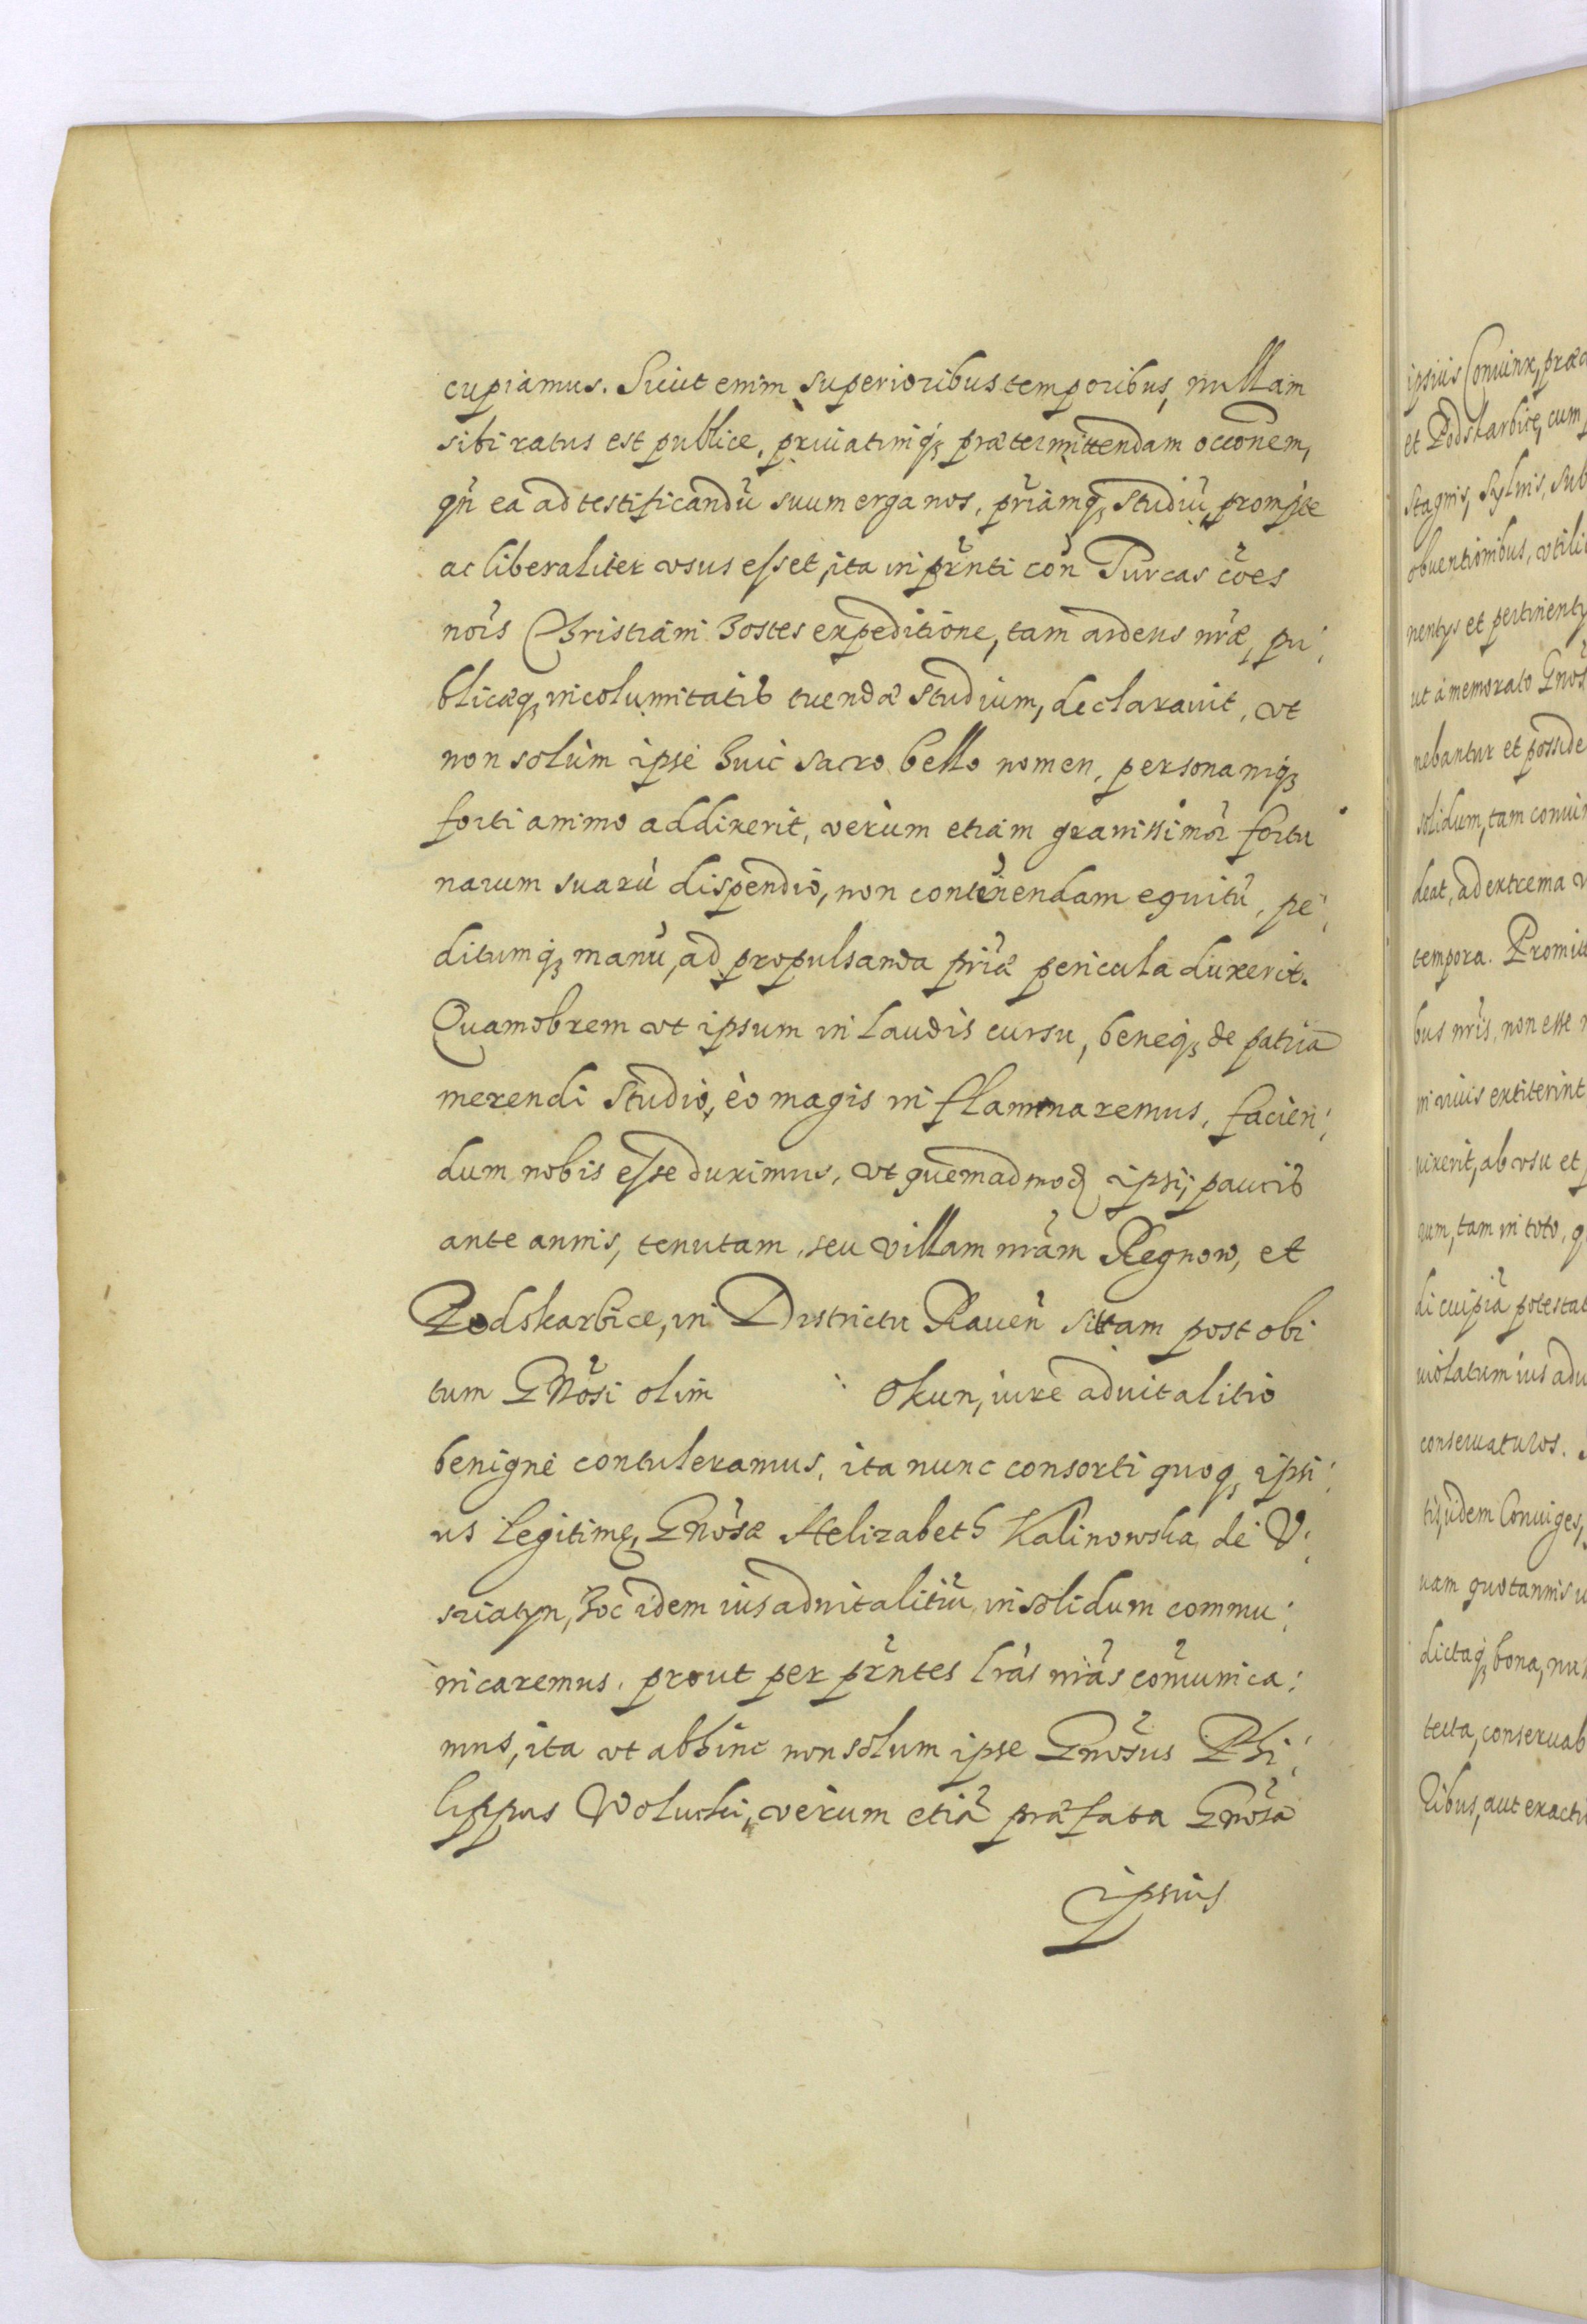 cupiamus. Sicut enim superioribus temporibus, nullam
sibi ratus est publice, priuatimq₃ prætermittendam occōnem,
qñ ea ad testificandũ suum erga nos, pr̃iamq₃ studiũ, prompte
ac liberaliter vsus esset, ita in pr̃nti cõn Turcas cões
nõis Christiani hostes expeditione, tam ardens nr̃æ, pu
blicæq₃ incolumitatis tuendæ studium, declarauit, vt
non solùm ipse huic sacro bello nomen, personamq₃
forti animo addixerit, verùm etiam grauissimõr fortu
narum suarũ dispendio, non contẽnendam equitũ, pe
ditumq₃ manũ, ad propulsanda pr̃iæ pericula duxerit.
Quamobrem vt ipsum in laudis cursu, beneq₃ de patria
merendi studio, èo magis inflammaremus, facien
dum nobis esse duximus, vt quemadmod̃ ipsi, paucis
ante annis, tenutam, seu villam nr̃am Regnow, et
Podskarbice, in Districtu Rauen̄ sitam post obi
tum Gnõsi olim Okun, iure aduitalitio
benignè contuleramus, ita nunc consorti quoq₃ ipsi
us legitimę, Gnõsæ Helizabeth Kalinowska de V
sciatyn, hoc idem ius aduitalitiũ, in solidum commu
nicaremus, prout per pr̃ntes lr̃as nr̃as cõmunica
mus, ita vt abhinc non solum ipse Gnõsus Phi
lippus Wolucki, verum etiã præfata Gnõsa
ipsius
ipsius Coniunx, præ
et Podskarbice, cum
stagnis, Syluis, sub
obuentionibus, vtili
nentys et pertinenty
ut à memorato Gnõs
nebantur et posside
solidum, tam coniun
deat, ad extrema v
tempora. Promitt
bus nr̃is, non esse
in viuis extiterint
uixerit, ab vsu et
rum, tam in toto, q
di cuipiã potestat
uiolatum ius adu
conseruaturos.
tis, ijdem Coniuges,
uam quotannis
dictaq₃ bona, nu
tecta, conseruab
libus, aut exacti